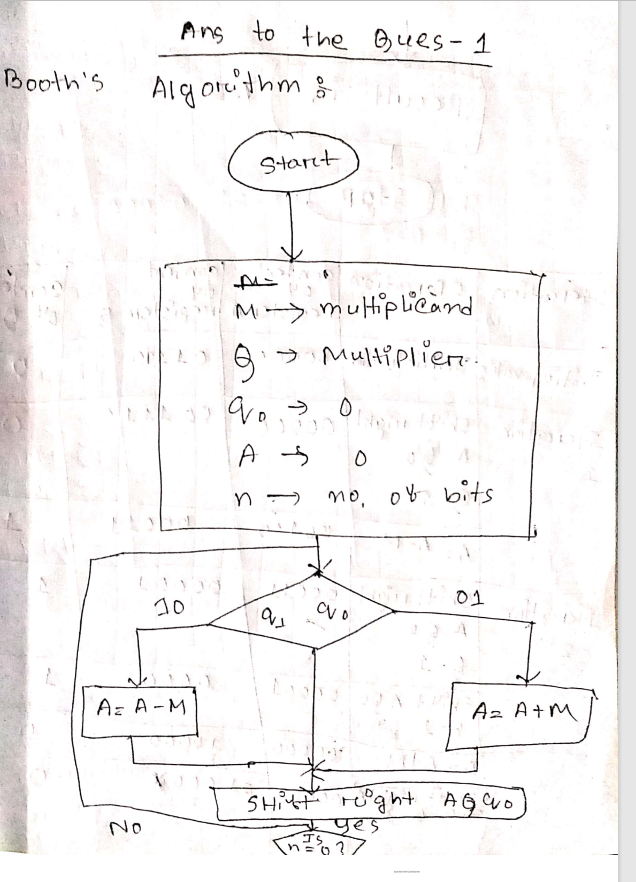 Ans to the Ques-1
Booth's Algorithm :
Start
M → multiplicand
Q → Multiplier
q₀ → 0
A → 0
n → no. of bits
10
q₁ q₀
01
A = A - M
A = A + M
SHift right AQq₀
No
Yes
Is
n = 0 ?